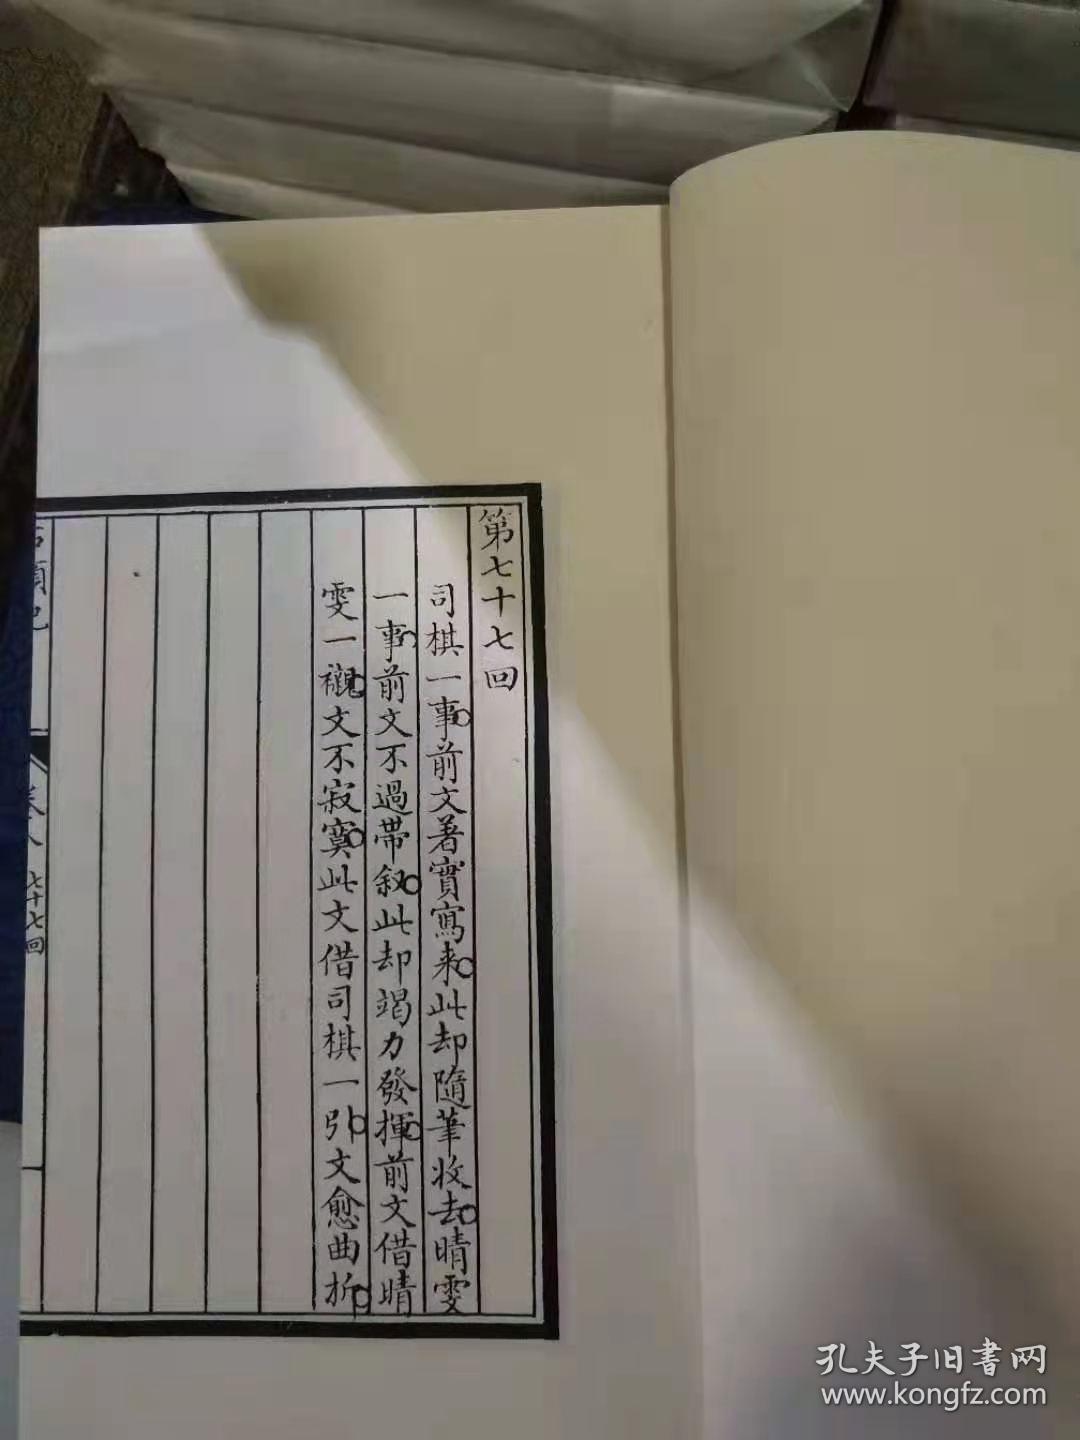 第七十七回
司棋一事前文著實寫来此却隨筆收去晴雯
一事前文不過帶叙此却竭力發揮前文借晴
雯一襯文不寂寞此文借司棋一引文愈曲折
石頭記
卷八
七十七回
孔夫子旧書网
www.kongfz.com